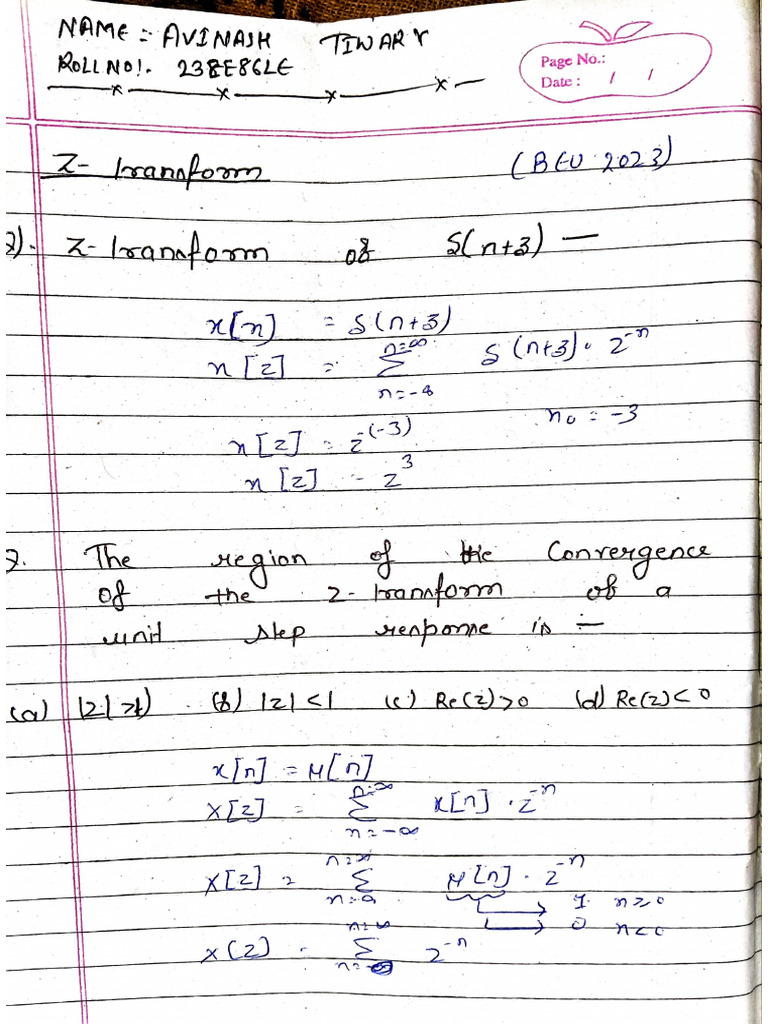 NAME :- AVINASH TIWARY
ROLL NO!. 23BE86LE
Page No.:
Date : / /
Z- transform (BEU 2023)
Q). Z-transform of δ(n+3) —
x[n] = δ(n+3)
x[z] = Σ n=∞ n=-∞ δ(n+3). z^-n
n0 = -3
x[z] = z^-(-3)
x[z] = z^3
2. The region of the Convergence
of the z-transform of a
unit step response is :-
(a) |z|>1) (b) |z|<1 (c) Re(z)>0 (d) Re(z)<0
x[n] = μ[n]
X[z] = Σ n=∞ n=-∞ x[n] . z^-n
X[z] = Σ n=∞ μ[n] . z^-n
1 n≥0
0 n<0
x(z) = Σ n=∞ z^-n